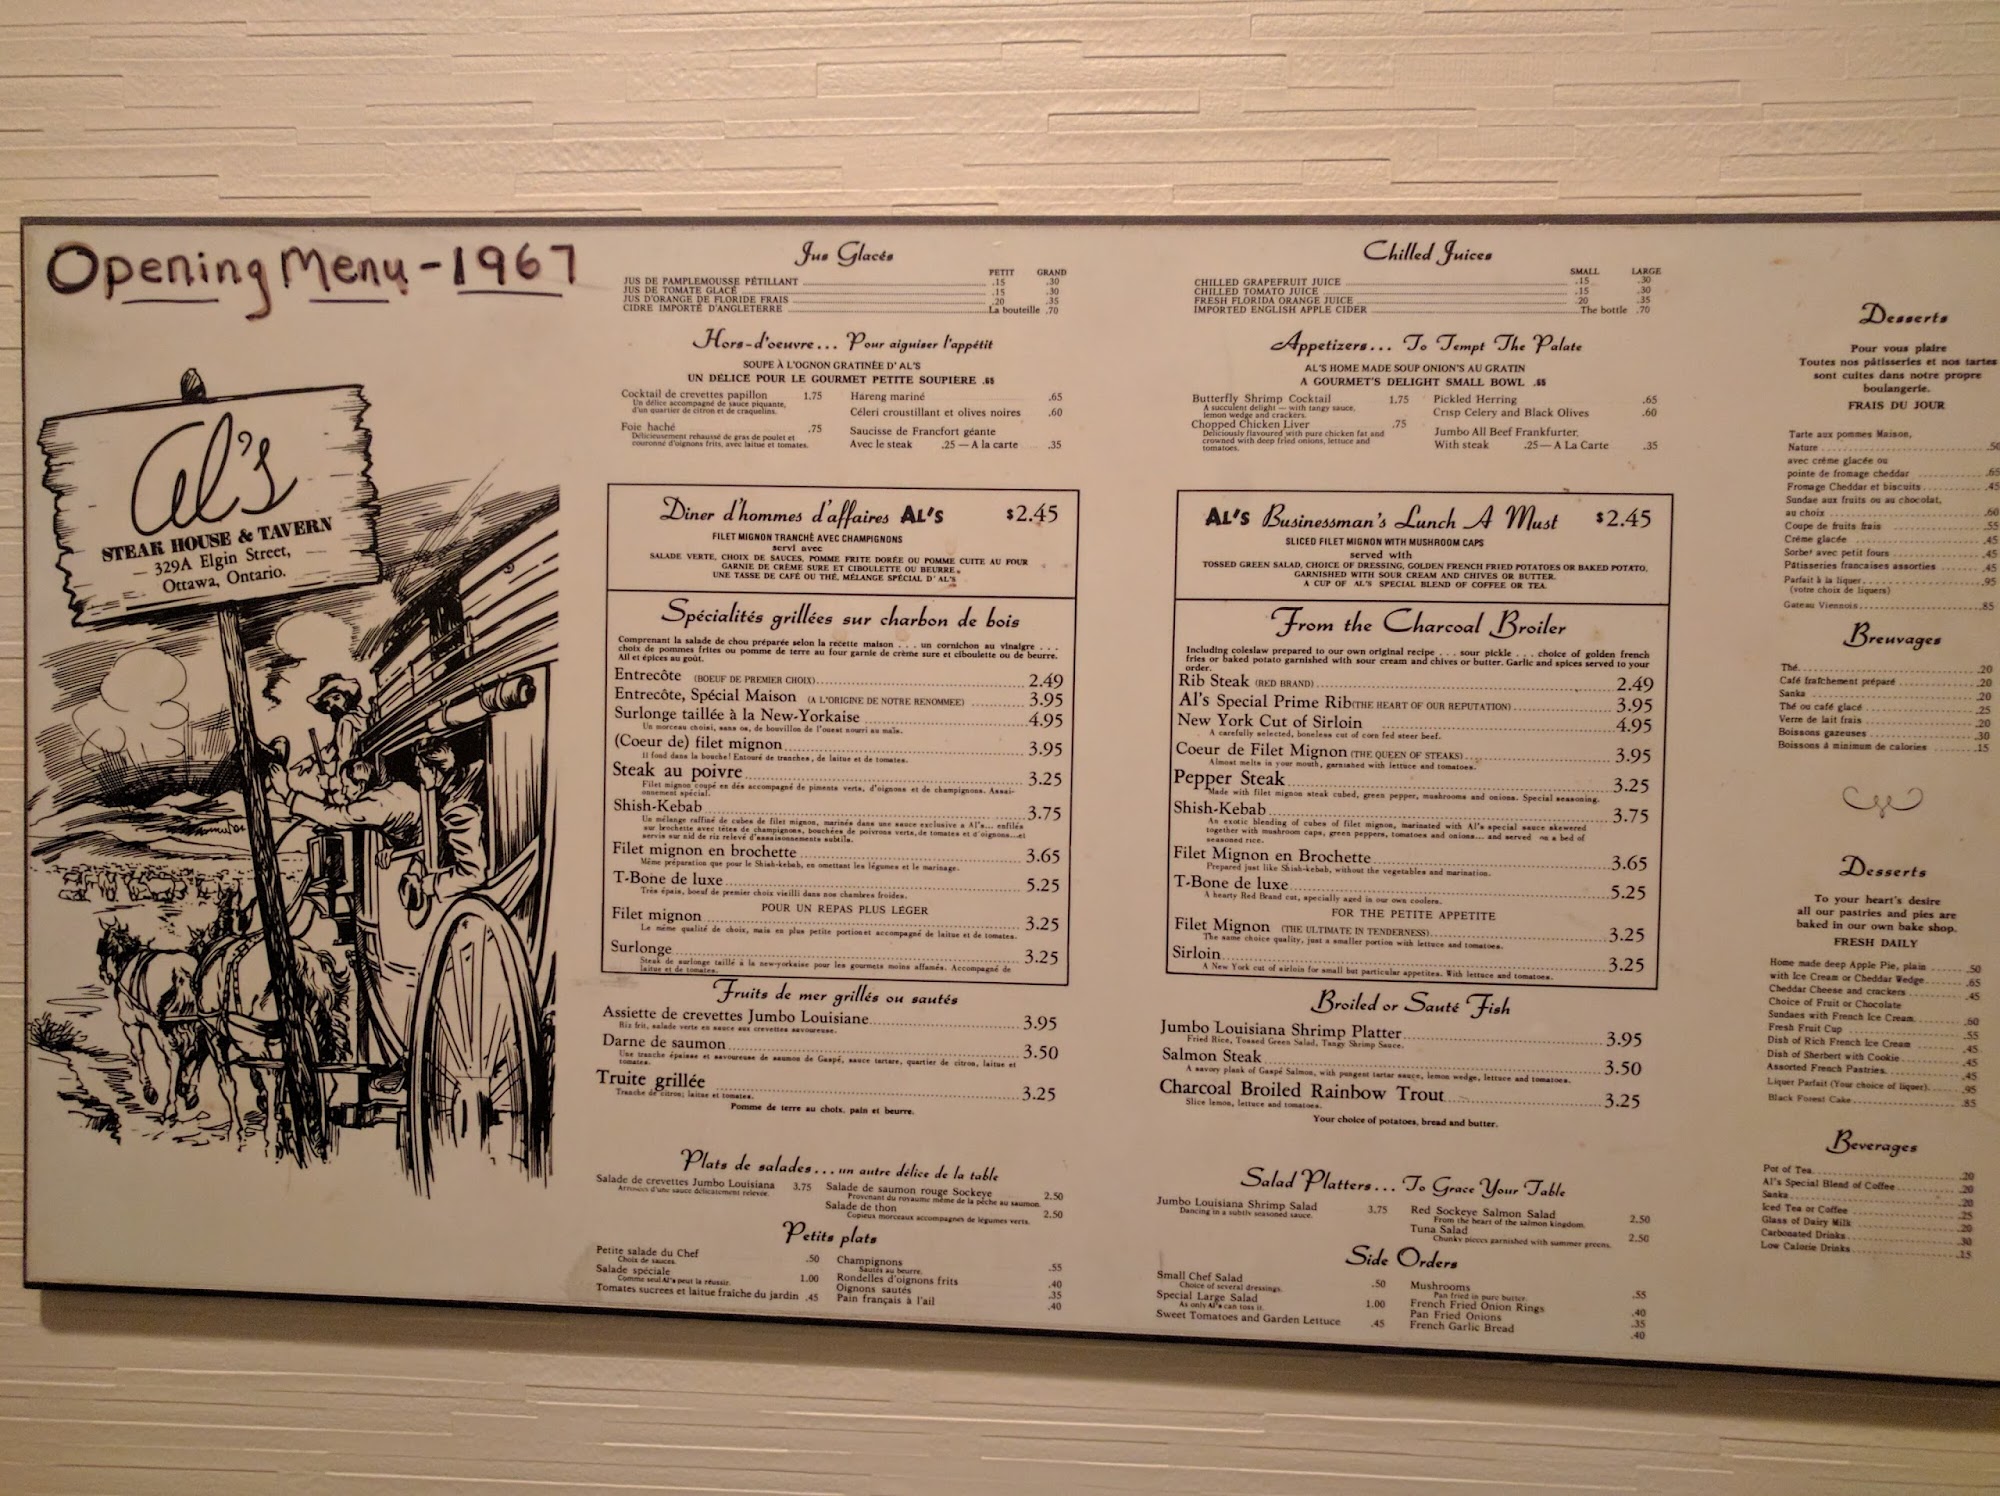 Opening Menu - 1967
Al's
STEAK HOUSE & TAVERN
329A Elgin Street,
Ottawa, Ontario.
Jus Glacés
PETIT GRAND
JUS DE PAMPLEMOUSSE PÉTILLANT .15 .30
JUS DE TOMATE GLACÉ .15 .30
JUS D'ORANGE DE FLORIDE FRAIS .20 .35
CIDRE IMPORTÉ D'ANGLETERRE La bouteille .70
Hors-d'oeuvre... Pour aiguiser l'appétit
SOUPE À L'OGNON GRATINÉE D'AL'S
UN DÉLICE POUR LE GOURMET PETITE SOUPIÈRE .65
Cocktail de crevettes papillon 1.75
Un délice accompagné de sauce piquante,
d'un quartier de citron et de craquelins.
Foie haché .75
Délicieusement rehaussé de gras de poulet et
couronné d'oignons frits, avec laitue et tomates.
Hareng mariné .65
Céleri croustillant et olives noires .60
Saucisse de Francfort géante
Avec le steak .25 — A la carte .35
Diner d'hommes d'affaires AL'S $2.45
FILET MIGNON TRANCHÉ AVEC CHAMPIGNONS
servi avec
SALADE VERTE, CHOIX DE SAUCES, POMME FRITE DORÉE OU POMME CUITE AU FOUR
GARNIE DE CRÈME SURE ET CIBOULETTE OU BEURRE.
UNE TASSE DE CAFÉ OU THÉ, MÉLANGE SPÉCIAL D'AL'S
Spécialités grillées sur charbon de bois
Comprenant la salade de chou préparée selon la recette maison . . . un cornichon au vinaigre . . .
choix de pommes frites ou pomme de terre au four garnie de crème sure et ciboulette ou de beurre.
Ail et épices au goût.
Entrecôte (BOEUF DE PREMIER CHOIX) 2.49
Entrecôte, Spécial Maison (A L'ORIGINE DE NOTRE RENOMMEE) 3.95
Surlonge taillée à la New-Yorkaise 4.95
Un morceau choisi, sans os, de bouvillon de l'ouest nourri au maïs.
(Coeur de) filet mignon 3.95
Il fond dans la bouche! Entouré de tranches, de laitue et de tomates.
Steak au poivre 3.25
Filet mignon coupé en dés accompagné de piments verts, d'oignons et de champignons. Assai-
onnement spécial.
Shish-Kebab 3.75
Un mélange raffiné de cubes de filet mignon, marinés dans une sauce exclusive a Al's... enfilés
sur brochette avec têtes de champignons, bouchées de poivrons verts, de tomates et d'oignons...et
servis sur nid de riz relevé d'assaisonnements subtils.
Filet mignon en brochette 3.65
Même préparation que pour le Shish-kebab, en omettant les légumes et le marinage.
T-Bone de luxe 5.25
Très épais, boeuf de premier choix vieilli dans nos chambres froides.
POUR UN REPAS PLUS LEGER
Filet mignon 3.25
Le même qualité de choix, mais en plus petite portion et accompagné de laitue et de tomates.
Surlonge 3.25
Steak de surlonge taillé à la new-yorkaise pour les gourmets moins affamés. Accompagné de
laitue et de tomates.
Fruits de mer grillés ou sautés
Assiette de crevettes Jumbo Louisiane 3.95
Riz frit, salade verte en sauce aux crevettes savoureuse.
Darne de saumon 3.50
Une tranche épaisse et savoureuse de saumon de Gaspé, sauce tartare, quartier de citron, laitue et
tomates.
Truite grillée 3.25
Tranche de citron; laitue et tomates.
Pomme de terre au choix, pain et beurre.
Plats de salades...un autre délice de la table
Salade de crevettes Jumbo Louisiana 3.75
Arrosées d'une sauce délicatement relevée.
Salade de saumon rouge Sockeye 2.50
Provenant du royaume même de la pêche au saumon.
Salade de thon 2.50
Copieux morceaux accompagnés de légumes verts.
Petits plats
Petite salade du Chef .50
Choix de sauces.
Salade spéciale 1.00
Comme seul Al's peut la réussir.
Tomates sucrees et laitue fraîche du jardin .45
Champignons .55
Sautés au beurre.
Rondelles d'oignons frits .40
Oignons sautés .35
Pain français à l'ail .40
Chilled Juices
SMALL LARGE
CHILLED GRAPEFRUIT JUICE .15 .30
CHILLED TOMATO JUICE .15 .30
FRESH FLORIDA ORANGE JUICE .20 .35
IMPORTED ENGLISH APPLE CIDER The bottle .70
Appetizers... To Tempt The Palate
AL'S HOME MADE SOUP ONION'S AU GRATIN
A GOURMET'S DELIGHT SMALL BOWL .65
Butterfly Shrimp Cocktail 1.75
A succulent delight — with tangy sauce,
lemon wedge and crackers.
Chopped Chicken Liver .75
Deliciously flavoured with pure chicken fat and
crowned with deep fried onions, lettuce and
tomatoes.
Pickled Herring .65
Crisp Celery and Black Olives .60
Jumbo All Beef Frankfurter,
With steak .25 — A La Carte .35
AL'S Businessman's Lunch A Must $2.45
SLICED FILET MIGNON WITH MUSHROOM CAPS
served with
TOSSED GREEN SALAD, CHOICE OF DRESSING, GOLDEN FRENCH FRIED POTATOES OR BAKED POTATO,
GARNISHED WITH SOUR CREAM AND CHIVES OR BUTTER.
A CUP OF AL'S SPECIAL BLEND OF COFFEE OR TEA.
From the Charcoal Broiler
Including coleslaw prepared to our own original recipe . . . sour pickle . . . choice of golden french
fries or baked potato garnished with sour cream and chives or butter. Garlic and spices served to your
order.
Rib Steak (RED BRAND) 2.49
Al's Special Prime Rib (THE HEART OF OUR REPUTATION) 3.95
New York Cut of Sirloin 4.95
A carefully selected, boneless cut of corn fed steer beef.
Coeur de Filet Mignon (THE QUEEN OF STEAKS) 3.95
Almost melts in your mouth, garnished with lettuce and tomatoes.
Pepper Steak 3.25
Made with filet mignon steak cubed, green pepper, mushrooms and onions. Special seasoning.
Shish-Kebab 3.75
An exotic blending of cubes of filet mignon, marinated with Al's special sauce skewered
together with mushroom caps, green peppers, tomatoes and onions... and served on a bed of
seasoned rice.
Filet Mignon en Brochette 3.65
Prepared just like Shish-kebab, without the vegetables and marination.
T-Bone de luxe 5.25
A hearty Red Brand cut, specially aged in our own coolers.
FOR THE PETITE APPETITE
Filet Mignon (THE ULTIMATE IN TENDERNESS) 3.25
The same choice quality, just a smaller portion with lettuce and tomatoes.
Sirloin 3.25
A New York cut of sirloin for small but particular appetites. With lettuce and tomatoes.
Broiled or Sauté Fish
Jumbo Louisiana Shrimp Platter 3.95
Fried Rice, Tossed Green Salad, Tangy Shrimp Sauce.
Salmon Steak 3.50
A savory plank of Gaspé Salmon, with pungent tartar sauce, lemon wedge, lettuce and tomatoes.
Charcoal Broiled Rainbow Trout 3.25
Slice lemon, lettuce and tomatoes.
Your choice of potatoes, bread and butter.
Salad Platters... To Grace Your Table
Jumbo Louisiana Shrimp Salad 3.75
Dancing in a subtly seasoned sauce.
Red Sockeye Salmon Salad 2.50
From the heart of the salmon kingdom.
Tuna Salad 2.50
Chunky pieces garnished with summer greens.
Side Orders
Small Chef Salad .50
Choice of several dressings.
Special Large Salad 1.00
As only Al's can toss it.
Sweet Tomatoes and Garden Lettuce .45
Mushrooms .55
Pan fried in pure butter.
French Fried Onion Rings .40
Pan Fried Onions .35
French Garlic Bread .40
Desserts
Pour vous plaire
Toutes nos pâtisseries et nos tartes
sont cuites dans notre propre
boulangerie.
FRAIS DU JOUR
Tarte aux pommes Maison,
Nature .50
avec crème glacée ou
pointe de fromage cheddar .65
Fromage Cheddar et biscuits .45
Sundae aux fruits ou au chocolat,
au choix .60
Coupe de fruits frais .55
Crème glacée .45
Sorbet avec petit fours .45
Pâtisseries francaises assorties .45
Parfait à la liquer .95
(votre choix de liquers)
Gateau Viennois .85
Breuvages
Thé .20
Café fraîchement préparé .20
Sanka .20
Thé ou café glacé .25
Verre de lait frais .20
Boissons gazeuses .30
Boissons à minimum de calories .15
Desserts
To your heart's desire
all our pastries and pies are
baked in our own bake shop.
FRESH DAILY
Home made deep Apple Pie, plain .50
with Ice Cream or Cheddar Wedge .65
Cheddar Cheese and crackers .45
Choice of Fruit or Chocolate
Sundaes with French Ice Cream .60
Fresh Fruit Cup .55
Dish of Rich French Ice Cream .45
Dish of Sherbert with Cookie .45
Assorted French Pastries .45
Liquer Parfait (Your choice of liquer) .95
Black Forest Cake .85
Beverages
Pot of Tea .20
Al's Special Blend of Coffee .20
Sanka .20
Iced Tea or Coffee .25
Glass of Dairy Milk .20
Carbonated Drinks .30
Low Calorie Drinks .15